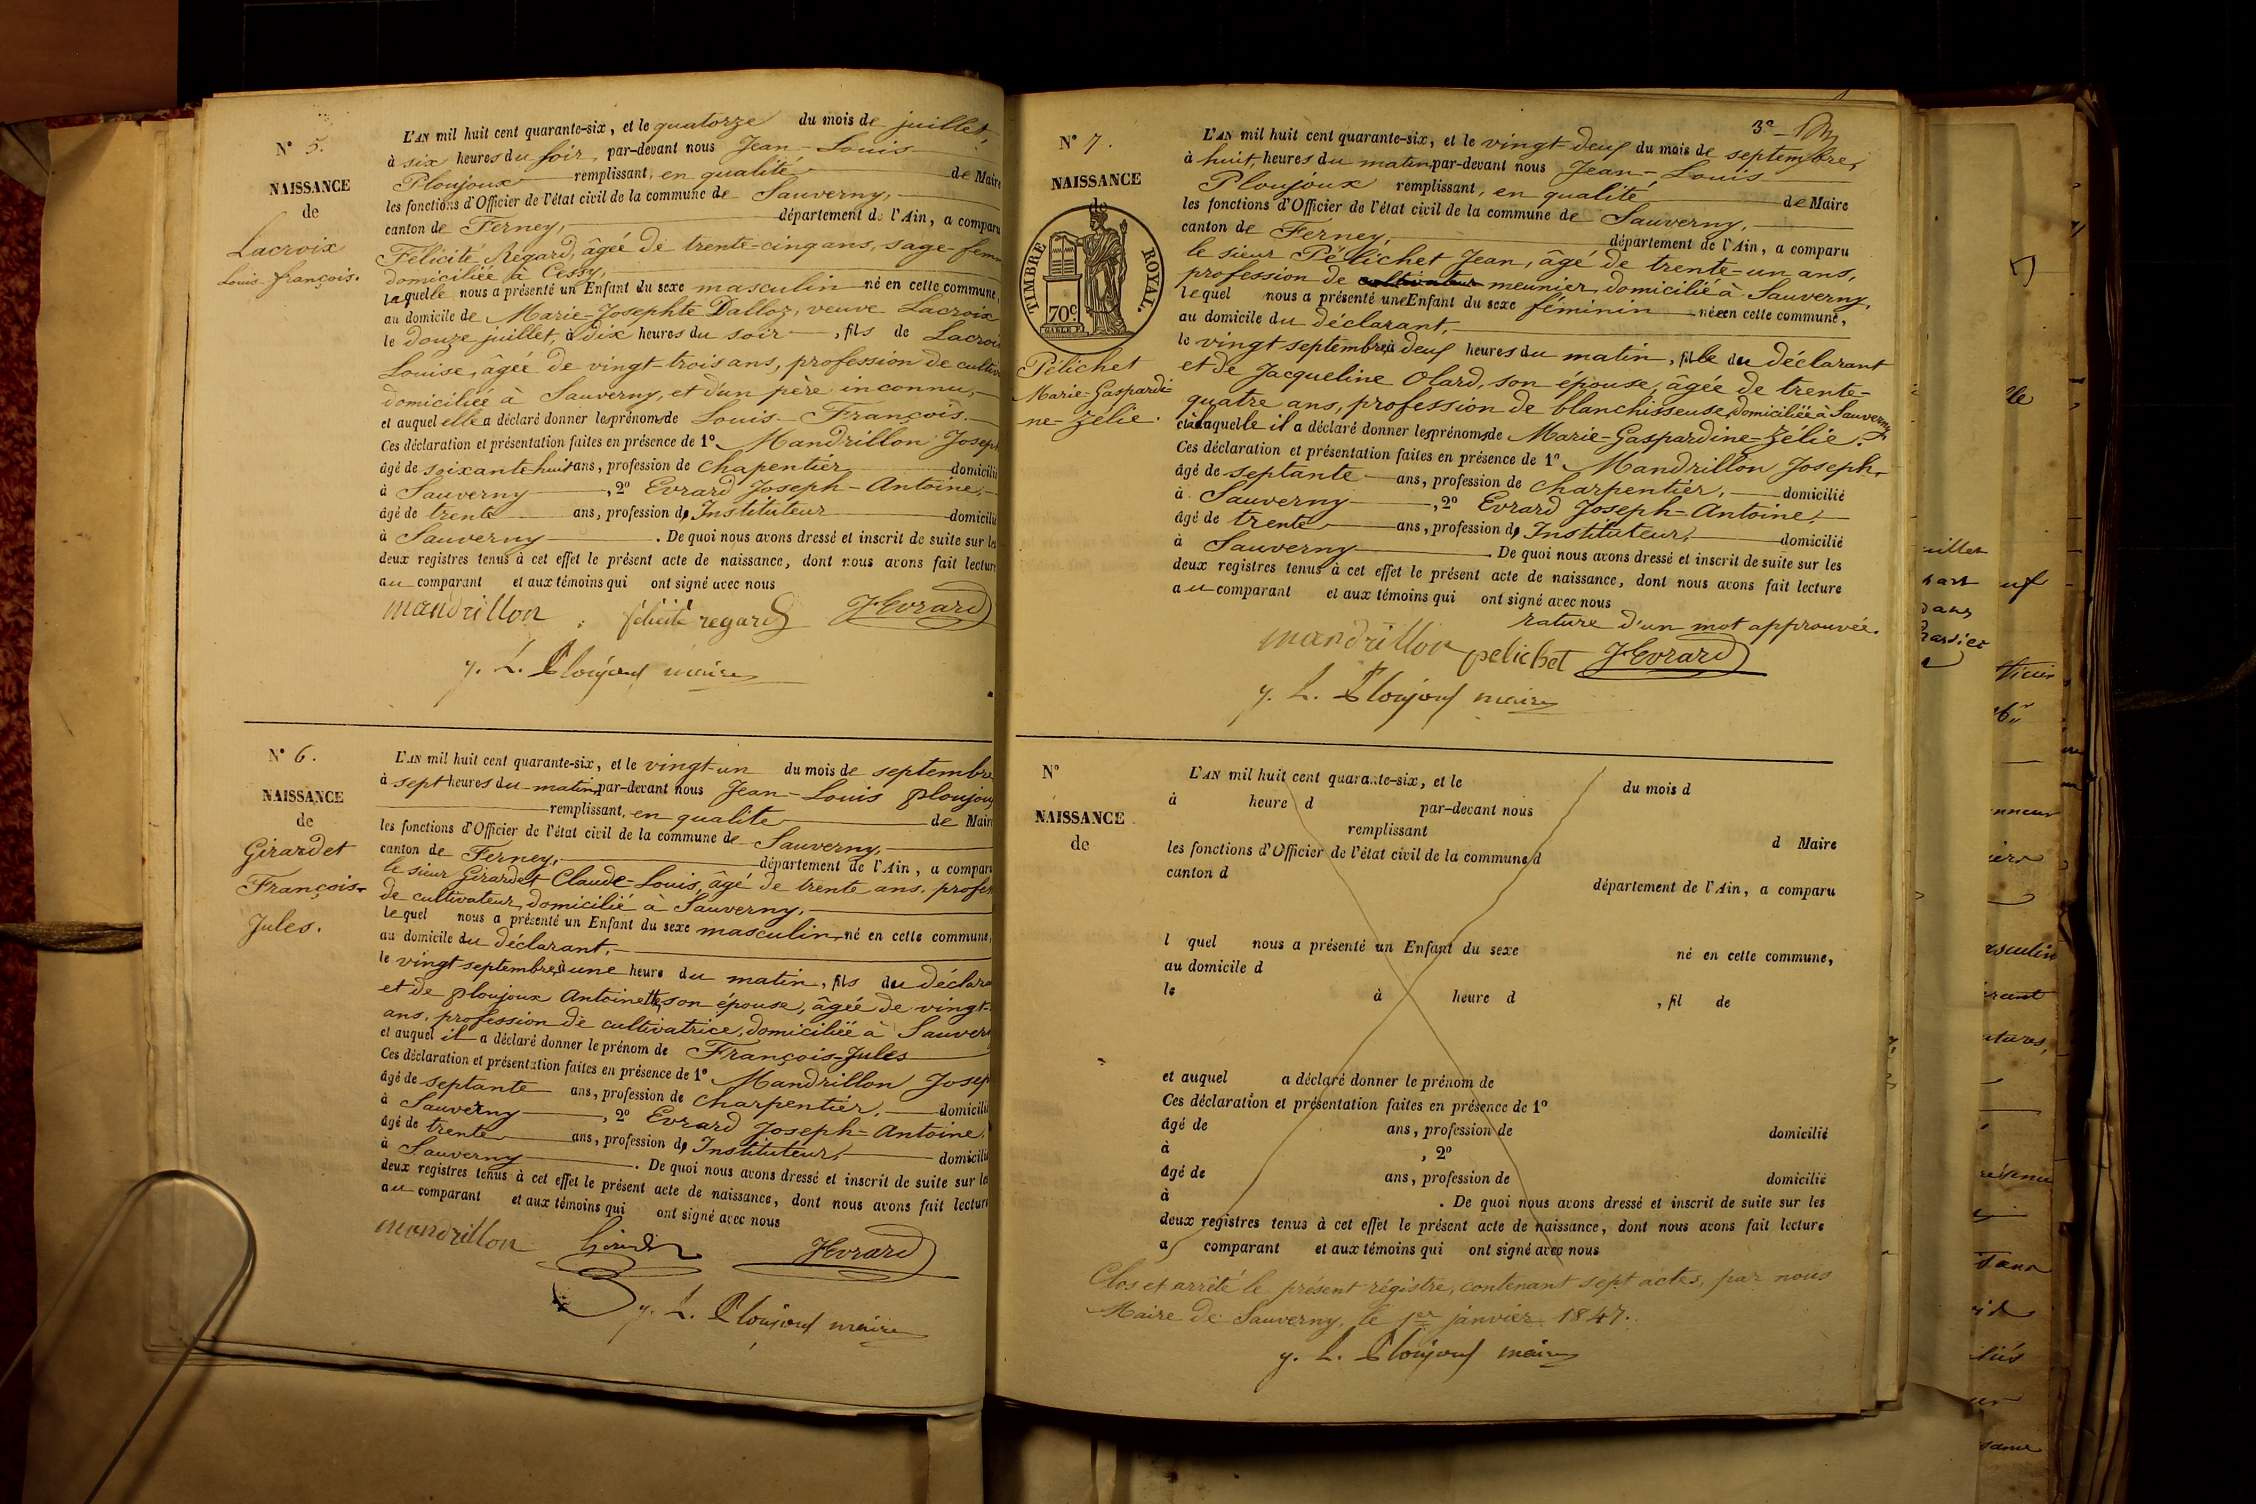 N° 5.
NAISSANCE
de
Lacroix
Louis-françois.
L'AN mil huit cent quarante-six, et le quatorze du mois de juillet,
à six heures du soir, par-devant nous Jean-Louis
Ploujoux remplissant, en qualité de Maire
les fonctions d'Officier de l'état civil de la commune de Sauverny,
canton de Ferney, département de l'Ain, a comparu
Félicité Regard, âgée de trente-cinq ans, sage-femm
domiciliée à Cessy,
laquelle nous a présenté un Enfant du sexe masculin né en cette commune,
au domicile de Marie-Josephte Dalloz, veuve Lacroix
le douze juillet, à dix heures du soir, fils de Lacroi
Louise, âgée de vingt-trois ans, profession de cultiv
domiciliée à Sauverny, et d'un père inconnu,
et auquel elle a déclaré donner les prénoms de Louis-François.
Ces déclaration et présentation faites en présence de 1° Mandrillon Joseph
âgé de soixante huit ans, profession de chapentier domicilié
à Sauverny, 2° Evrard Joseph-Antoine,
âgé de trente ans, profession d' Instituteur domicilié
à Sauverny. De quoi nous avons dressé et inscrit de suite sur les
deux registres tenus à cet effet le présent acte de naissance, dont nous avons fait lecture
au comparant et aux témoins qui ont signé avec nous
mandrillon félicité regard J Evrard
j. L. Ploujoux maire
N° 6.
NAISSANCE
de
Girardet
François-
Jules.
L'AN mil huit cent quarante-six, et le vingt-un du mois de septembre
à sept heures du matin, par-devant nous Jean-Louis Ploujoux
remplissant, en qualité de Maire
les fonctions d'Officier de l'état civil de la commune de Sauverny,
canton de Ferney, département de l'Ain, a comparu
le sieur Girardet Claude-Louis, âgé de trente ans, profes
de cultivateur, domicilié à Sauverny,
lequel nous a présenté un Enfant du sexe masculin, né en cette commune,
au domicile du déclarant,
le vingt septembre, à une heure du matin, fils du déclara
et de Ploujoux Antoinette, son épouse, âgée de vingt-
ans, profession de cultivatrice, domiciliée à Sauvern
et auquel il a déclaré donner le prénom de François-Jules
Ces déclaration et présentation faites en présence de 1° Mandrillon Josep
âgé de septante ans, profession de charpentier, domicilié
à Sauverny, 2° Evrard Joseph-Antoine,
âgé de trente ans, profession d' Instituteur, domicilié
à Sauverny. De quoi nous avons dressé et inscrit de suite sur les
deux registres tenus à cet effet le présent acte de naissance, dont nous avons fait lecture
au comparant et aux témoins qui ont signé avec nous
mandrillon J Evrard
j. L. Ploujoux maire
3e
N° 7.
NAISSANCE
de
TIMBRE ROYAL.
70c.
Pélichet
Marie-Gaspardi
ne-Zélie.
L'AN mil huit cent quarante-six, et le vingt-deux du mois de septembre,
à huit heures du matin, par-devant nous Jean-Louis
Ploujoux remplissant, en qualité de Maire
les fonctions d'Officier de l'état civil de la commune de Sauverny,
canton de Ferney, département de l'Ain, a comparu
le sieur Pélichet Jean, âgé de trente-un ans,
profession de cultivateur meunier, domicilié à Sauverny,
lequel nous a présenté une Enfant du sexe féminin née en cette commune,
au domicile du déclarant,
le vingt septembre, à deux heures du matin, fille du déclarant
et de Jacqueline Olard, son épouse, âgée de trente-
quatre ans, profession de blanchisseuse, domiciliée à Sauverny
et à laquelle il a déclaré donner les prénoms de Marie-Gaspardine-Zélie.
Ces déclaration et présentation faites en présence de 1° Mandrillon Joseph,
âgé de septante ans, profession de charpentier, domicilié
à Sauverny, 2° Evrard Joseph-Antoine,
âgé de trente ans, profession d' Instituteur, domicilié
à Sauverny. De quoi nous avons dressé et inscrit de suite sur les
deux registres tenus à cet effet le présent acte de naissance, dont nous avons fait lecture
au comparant et aux témoins qui ont signé avec nous
rature d'un mot approuvée.
mandrillon pelichet J Evrard
j. L. Ploujoux maire
N°
NAISSANCE
de
L'AN mil huit cent quarante-six, et le du mois d
à heure d par-devant nous
remplissant d Maire
les fonctions d'Officier de l'état civil de la commune d
canton d département de l'Ain, a comparu
l quel nous a présenté un Enfant du sexe né en cette commune,
au domicile d
le à heure d , fil de
et auquel a déclaré donner le prénom de
Ces déclaration et présentation faites en présence de 1°
âgé de ans, profession de domicilié
à , 2°
âgé de ans, profession de domicilié
à . De quoi nous avons dressé et inscrit de suite sur les
deux registres tenus à cet effet le présent acte de naissance, dont nous avons fait lecture
a comparant et aux témoins qui ont signé avec nous
Clos et arrêté le présent régistre, contenant sept actes, par nous
Maire de Sauverny, le 1er janvier 1847.
j. L. Ploujoux maire